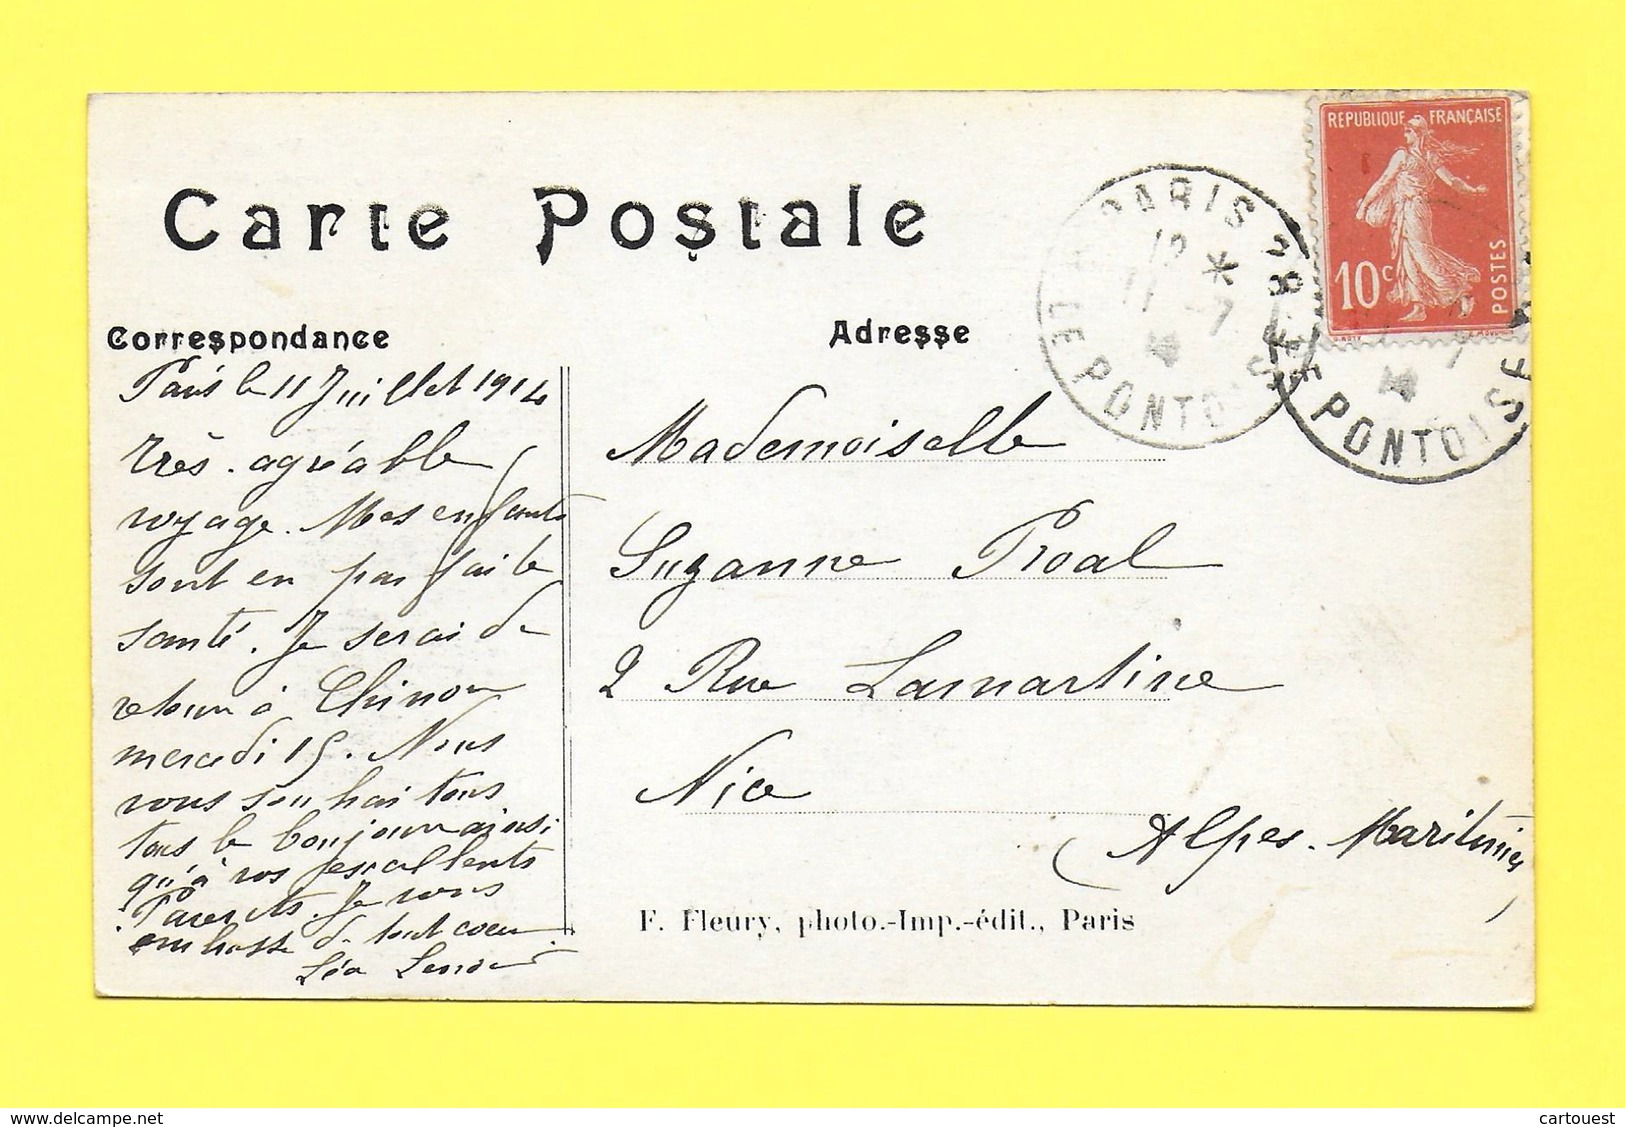 Carte Postale
Correspondance
Adresse
REPUBLIQUE FRANÇAISE
10c
POSTES
PARIS
12 *
11 -7
14
PONTOISE
PONTOISE
14
Paris le 11 Juillet 1914
très agréable
voyage. Mes enfants
sont en parfaite
santé. Je serai de
retour à Chinon
mercredi 15. Nous
vous souhaitons
tous le bonjour ainsi
qu'à vos excellents
Parents. Je vous
embrasse de tout coeur
Léa
Mademoiselle
Suzanne Proal
2 Rue Lamartine
Nice
(Alpes-Maritimes)
F. Fleury, photo.-Imp.-édit., Paris
www.delcampe.net
cartouest